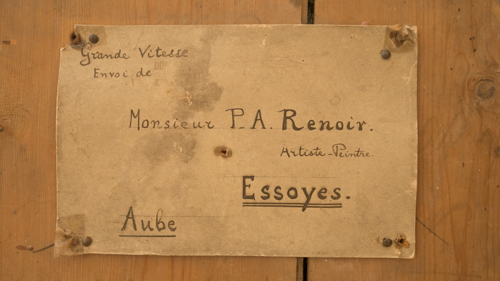 Grande Vitesse
Envoi de
Monsieur P-A. Renoir.
Artiste-Peintre.
Essoyes.
Aube